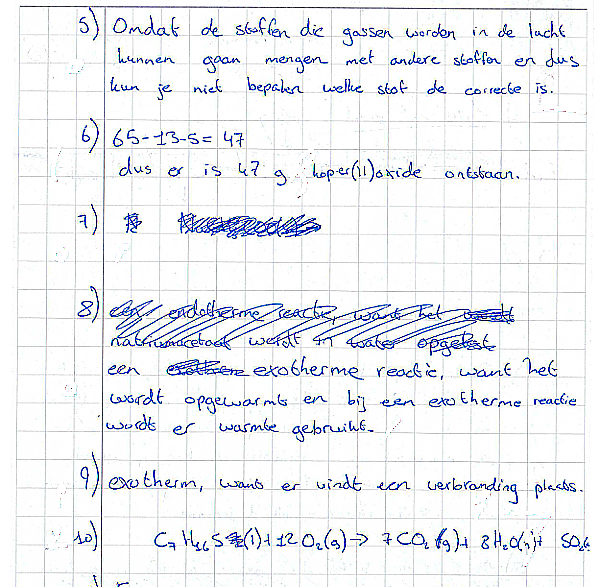 5) Omdat de stoffen die gassen worden in de lucht
kunnen gaan mengen met andere stoffen en dus
kun je niet bepalen welke stof de correcte is.
6) 65-13-5= 47
dus er is 47 g koper(II)oxide ontstaan.
7)
8) een endotherme reactie, want het
natriumacetaat werdt in water opgelost
een exotherme reactie, want het
wordt opgewarmt en bij een exotherme reactie
wordt er warmte gebruikt.
9) exotherm, want er vindt een verbranding plaats.
10) C7H16S (l)+12O2(g)→ 7CO2(g)+ 8H2O(g)+ SO2